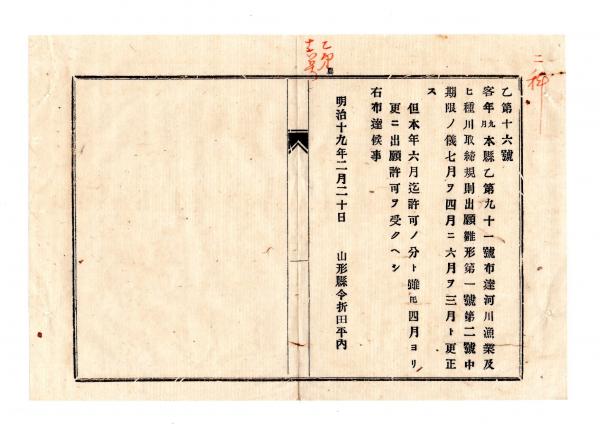 乙第十六號
客年九月本縣乙第九十一號布達河川漁業及
ヒ種川取締規則出願雛形第一號第二號中
期限ノ儀七月ヲ四月ニ六月ヲ三月ト更正
ス
但本年六月迄許可ノ分ト雖𪜈四月ヨリ
更ニ出願許可ヲ受クヘシ
右布達候事
明治十九年二月二十日
山形縣令折田平內